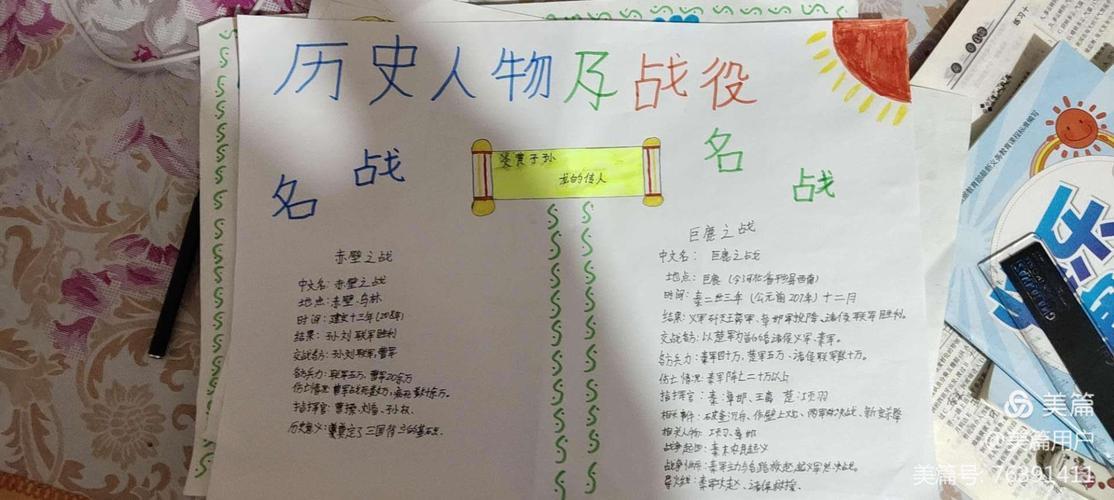 历史人物及战役
名战
炎黄子孙
龙的传人
名战
赤壁之战
中文名：赤壁之战
地点：赤壁、乌林
时间：建安十三年(208年)
结果：孙刘联军胜利
交战各方：孙刘联军,曹军
各方兵力：联军五万,曹军20余万
伤亡情况：曹军战死
指挥官：曹操、刘备、孙权.
历史意义：奠定了三国鼎立的基础.
巨鹿之战
中文名：巨鹿之战
地点：巨鹿(今河北省平乡县西南)
时间：秦二世三年(公元前207年)十二月
结果：章邯军投降、诸侯联军胜利.
交战各方：以楚军为首的诸侯义军、秦军.
各方兵力：秦军四十万,楚军五万、诸侯联军数十万.
伤亡情况：秦军阵亡二十万以上
指挥官：秦:章邯、王离 楚:项羽
相关事件：破釜沉舟、作壁上观、
相关人物：项羽、章邯
战争起因：秦末农民起义
导火线：秦军攻赵、诸侯救援.
美篇
@美篇用户
美篇号: 76391411